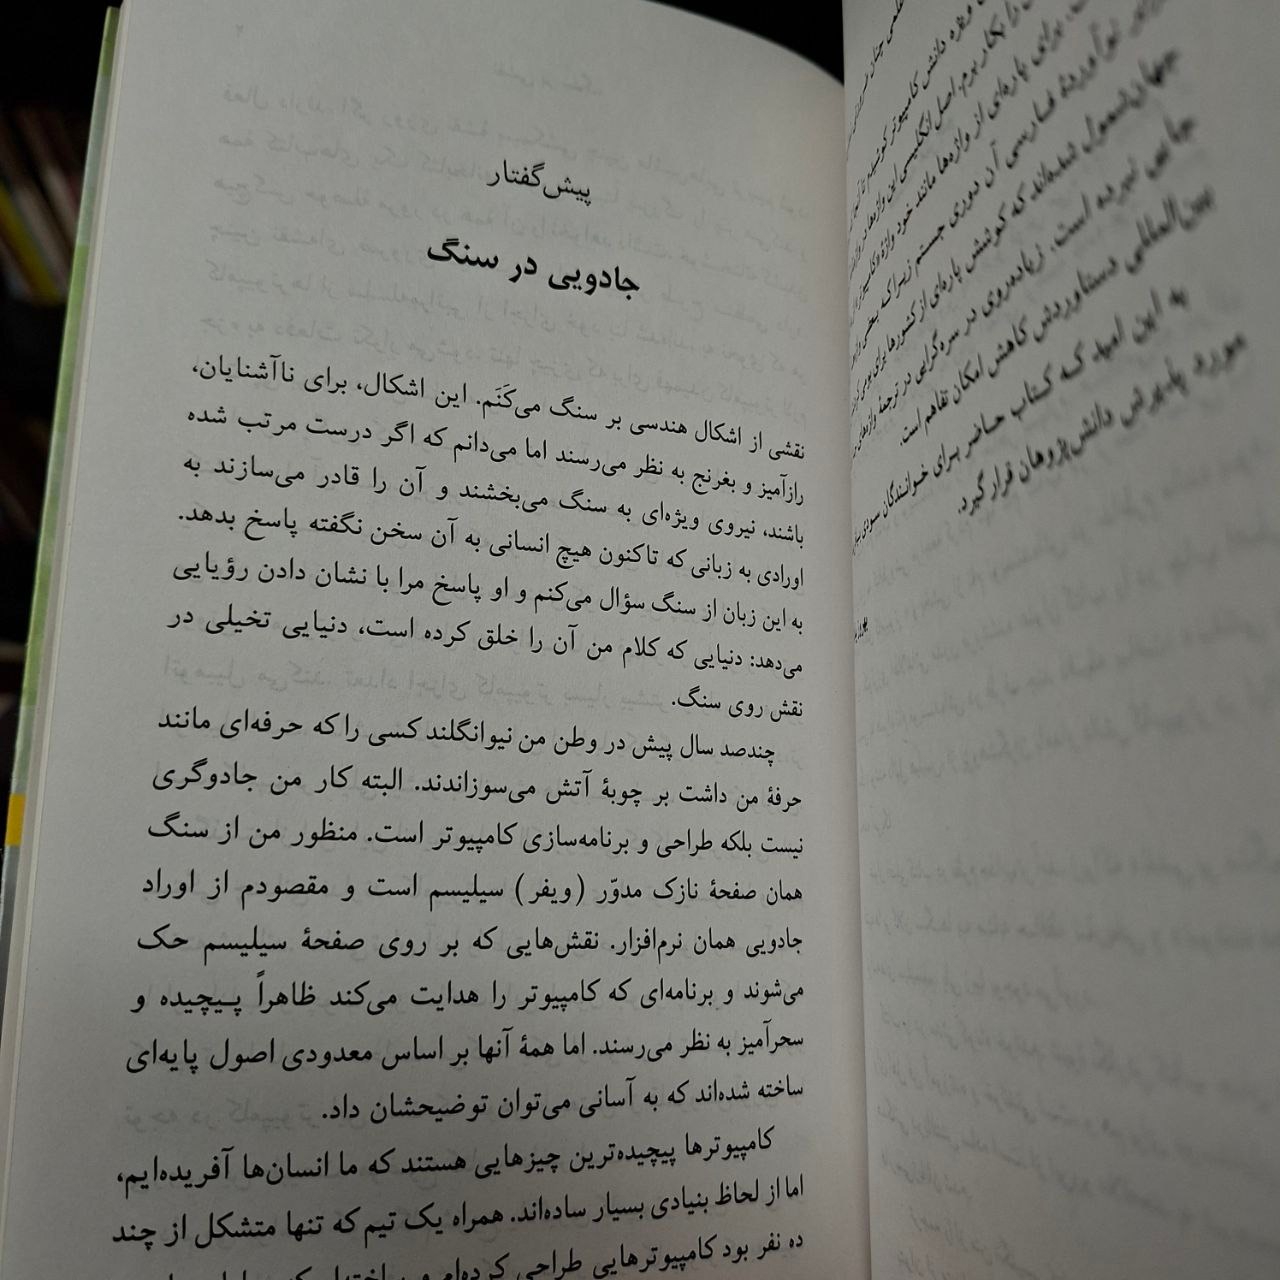 پیش‌گفتار
جادویی در سنگ
نقشی از اشکال هندسی بر سنگ می‌کَنَم. این اشکال، برای ناآشنایان،
رازآمیز و بغرنج به نظر می‌رسند اما می‌دانم که اگر درست مرتب شده
باشند، نیروی ویژه‌ای به سنگ می‌بخشند و آن را قادر می‌سازند به
اورادی به زبانی که تاکنون هیچ انسانی به آن سخن نگفته پاسخ بدهد.
به این زبان از سنگ سؤال می‌کنم و او پاسخ مرا با نشان دادن رؤیایی
می‌دهد: دنیایی که کلام من آن را خلق کرده است، دنیایی تخیلی در
نقش روی سنگ.
چندصد سال پیش در وطن من نیوانگلند کسی را که حرفه‌ای مانند
حرفهٔ من داشت بر چوبهٔ آتش می‌سوزاندند. البته کار من جادوگری
نیست بلکه طراحی و برنامه‌سازی کامپیوتر است. منظور من از سنگ
همان صفحهٔ نازک مدوّر (ویفر) سیلیسم است و مقصودم از اوراد
جادویی همان نرم‌افزار. نقش‌هایی که بر روی صفحهٔ سیلیسم حک
می‌شوند و برنامه‌ای که کامپیوتر را هدایت می‌کند ظاهراً پیچیده و
سحرآمیز به نظر می‌رسند. اما همهٔ آنها بر اساس معدودی اصول پایه‌ای
ساخته شده‌اند که به آسانی می‌توان توضیحشان داد.
کامپیوترها پیچیده‌ترین چیزهایی هستند که ما انسان‌ها آفریده‌ایم،
اما از لحاظ بنیادی بسیار ساده‌اند. همراه یک تیم که تنها متشکل از چند
ده نفر بود کامپیوترهایی طراحی کرده‌ام و
ویژه دانش کامپیوتر کوشیدم تا
را بکار برم. اصل انگلیسی این واژه‌ها
برای پاره‌ای از واژه‌ها مانند خود واژه
نوآوردهٔ فارسی آن دوری جستم زیرا که
جهان‌شمول شده‌اند که کوشش پاره‌ای از کشورها برای
جایی نبرده است. زیاده‌روی در سره‌گرایی در ترجمهٔ واژه‌های
بین‌المللی دستاوردش کاهش امکان تفاهم است.
به این امید که کتاب حاضر برای خوانندگان سودی
مورد پذیرش دانش‌پژوهان قرار گیرد.